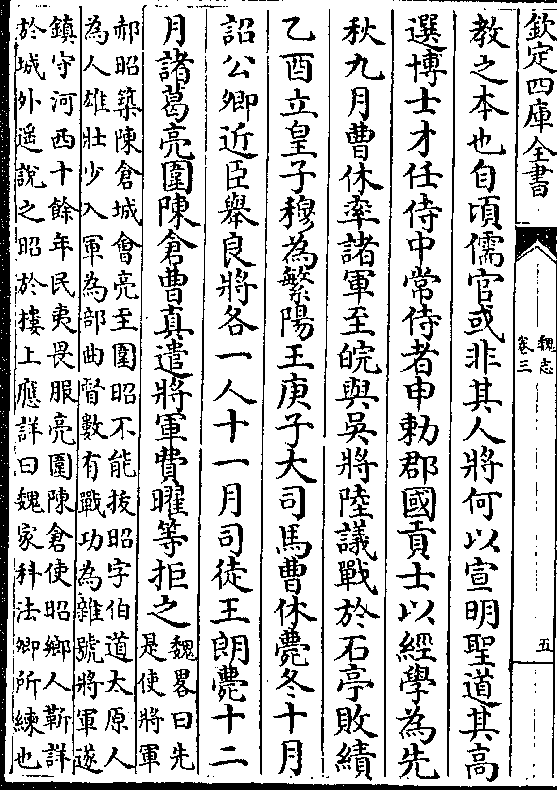 欽定四庫全書
魏志
卷三
五
教之本也自頃儒官或非其人將何以宣明聖道其高
選博士才任侍中常侍者申勅郡國貢士以經學為先
秋九月曹休率諸軍至皖與吳將陸議戰於石亭敗績
乙酉立皇子穆為繁陽王庚子大司馬曹休薨冬十月
詔公卿近臣舉良將各一人十一月司徒王朗薨十二
月諸葛亮圍陳倉曹真遣將軍費曜等拒之
魏畧曰先
是使將軍
郝昭築陳倉城會亮至圍昭不能拔昭字伯道太原人
為人雄壯少入軍為部曲督數有戰功為雜號將軍遂
鎮守河西十餘年民夷畏服亮圍陳倉使昭鄉人靳詳
於城外遥說之昭於樓上應詳曰魏家科法卿所練也